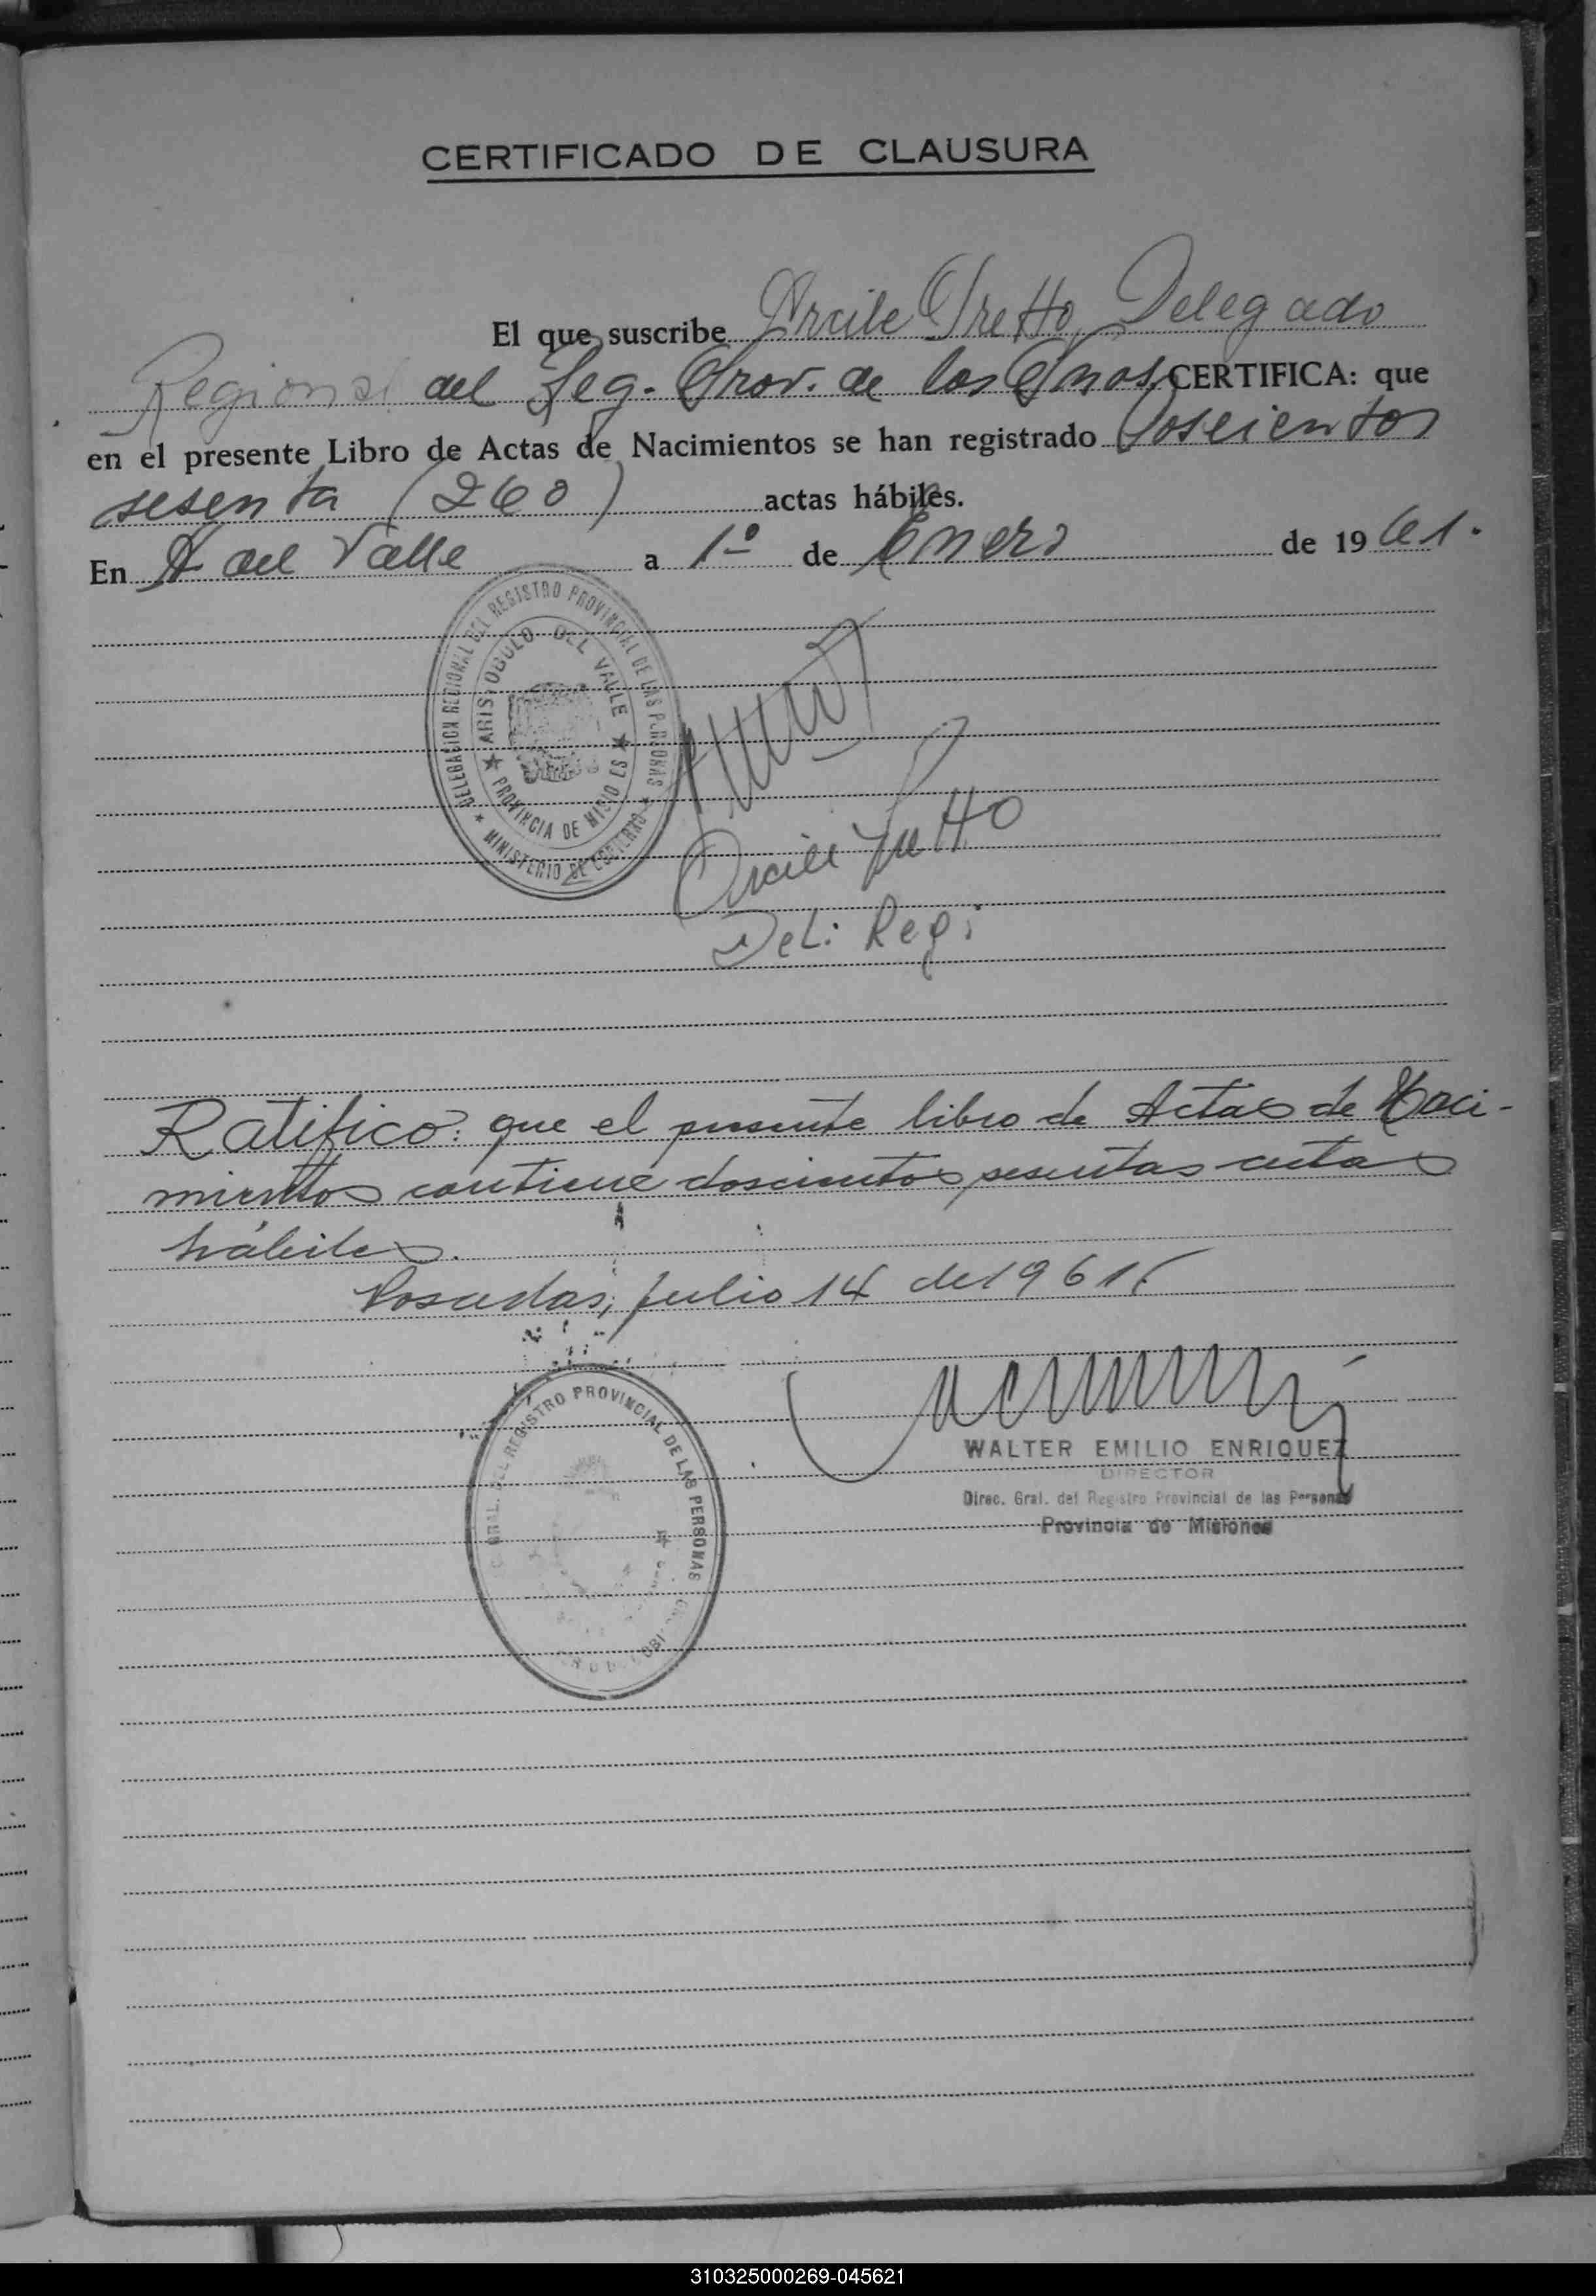 CERTIFICADO DE CLAUSURA
El que suscribe Arcile Pretto, Delegado
Regional del Reg. Prov. de las Pnas, CERTIFICA: que
en el presente Libro de Actas de Nacimientos se han registrado Doscientos
sesenta (260) actas hábiles.
En A. del Valle a 1º de Enero de 1961.
DELEGACION REGIONAL DEL REGISTRO PROVINCIAL DE LAS PERSONAS
★ ARISTOBULO DEL VALLE ★
PROVINCIA DE MISIONES
★ MINISTERIO DE GOBIERNO ★
Arcile Pretto
Del: Reg:
Ratifico: que el presente libro de Actas de Naci-
mientos contiene doscientos sesentas actas
hábiles.
Posadas, julio 14 de 1961
GRAL. DEL REGISTRO PROVINCIAL DE LAS PERSONAS
WALTER EMILIO ENRIQUEZ
DIRECTOR
Direc. Gral. del Registro Provincial de las Personas
Provincia de Misiones
310325000269-045621